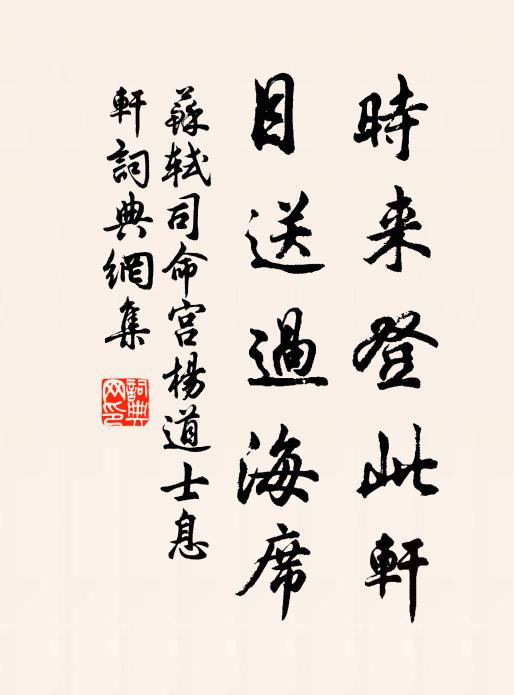 時来登此軒
目送過海席
蘇軾司命宮楊道士息
軒詞典網集
詞典
网印